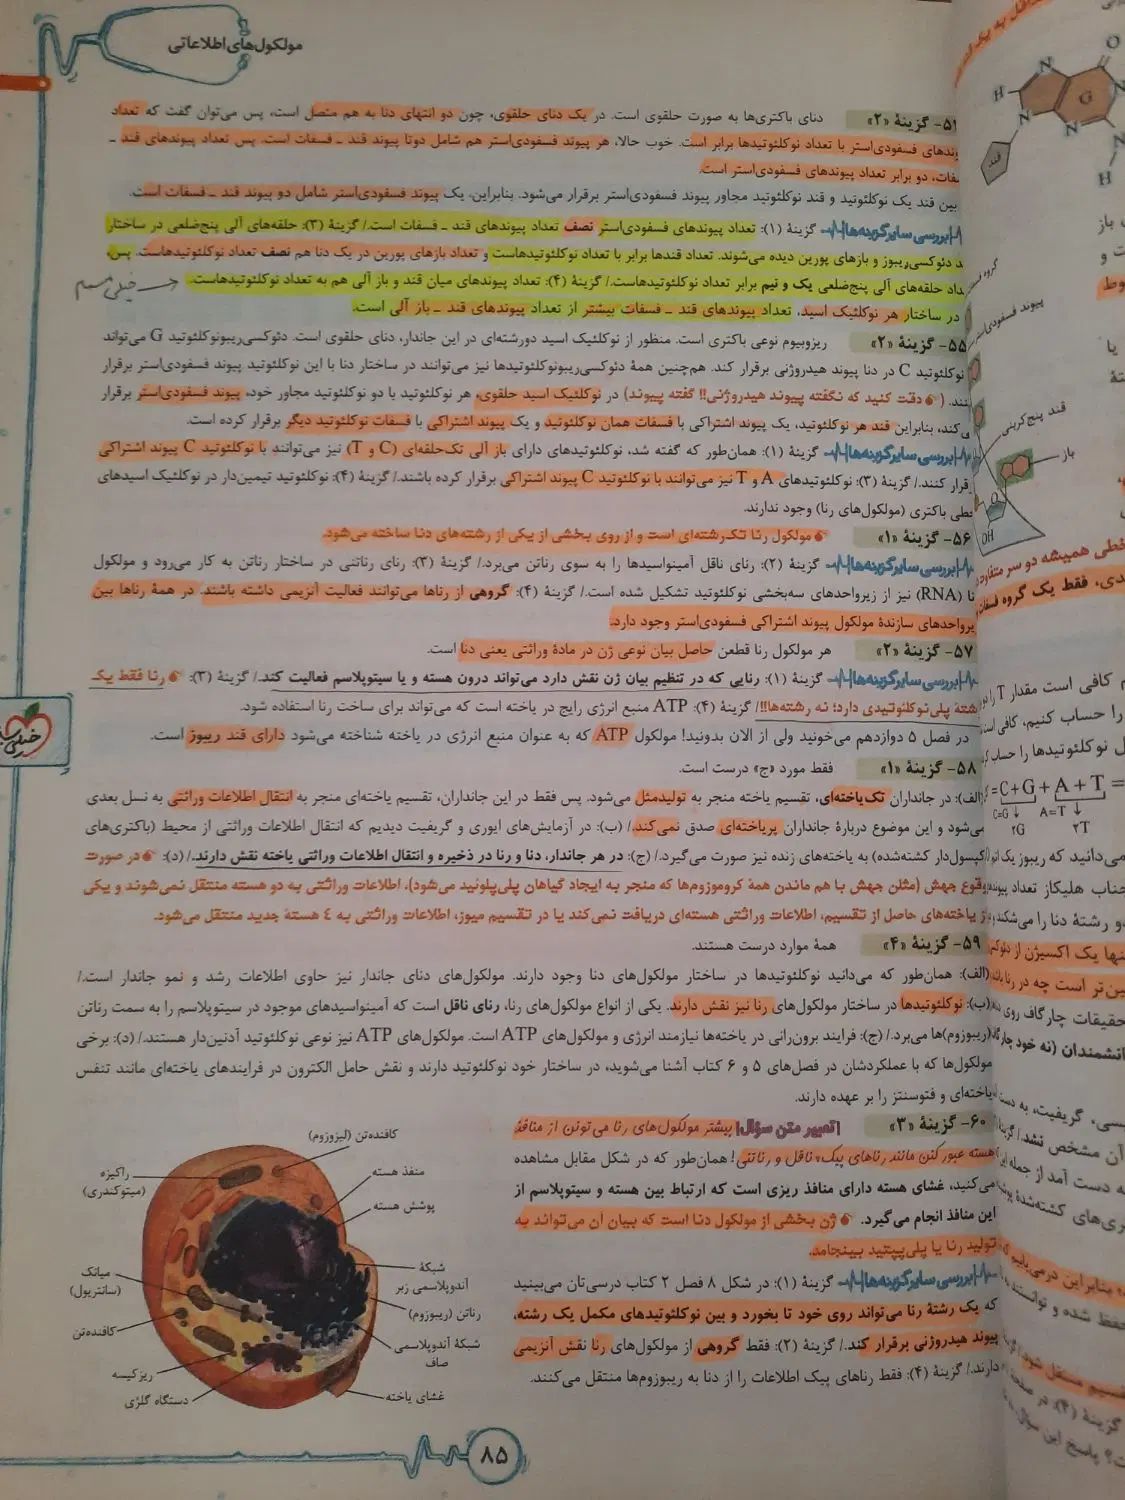 مولکول‌های اطلاعاتی
۵۱- گزینهٔ «۲» دنای باکتری‌ها به صورت حلقوی است. در یک دنای حلقوی، چون دو انتهای دنا به هم متصل است، پس می‌توان گفت که تعداد
پیوندهای فسفودی‌استر با تعداد نوکلئوتیدها برابر است. خوب حالا، هر پیوند فسفودی‌استر هم شامل دوتا پیوند قند ـ فسفات است. پس تعداد پیوندهای قند ـ
فسفات، دو برابر تعداد پیوندهای فسفودی‌استر است.
بین قند یک نوکلئوتید و قند نوکلئوتید مجاور پیوند فسفودی‌استر برقرار می‌شود. بنابراین، یک پیوند فسفودی‌استر شامل دو پیوند قند ـ فسفات است.
بررسی سایر گزینه‌ها گزینهٔ (۱): تعداد پیوندهای فسفودی‌استر نصف تعداد پیوندهای قند ـ فسفات است./ گزینهٔ (۳): حلقه‌های آلی پنج‌ضلعی در ساختار
قند دئوکسی‌ریبوز و بازهای پورین دیده می‌شوند. تعداد قندها برابر با تعداد نوکلئوتیدهاست و تعداد بازهای پورین در یک دنا هم نصف تعداد نوکلئوتیدهاست. پس،
تعداد حلقه‌های آلی پنج‌ضلعی یک و نیم برابر تعداد نوکلئوتیدهاست./ گزینهٔ (۴): تعداد پیوندهای میان قند و باز آلی هم به تعداد نوکلئوتیدهاست.
خیلی مهم
در ساختار هر نوکلئیک اسید، تعداد پیوندهای قند ـ فسفات بیشتر از تعداد پیوندهای قند ـ باز آلی است.
۵۵- گزینهٔ «۲» ریزوبیوم نوعی باکتری است. منظور از نوکلئیک اسید دورشته‌ای در این جاندار، دنای حلقوی است. دئوکسی‌ریبونوکلئوتید G می‌تواند
نوکلئوتید C در دنا پیوند هیدروژنی برقرار کند. هم‌چنین همهٔ دئوکسی‌ریبونوکلئوتیدها نیز می‌توانند در ساختار دنا با این نوکلئوتید پیوند فسفودی‌استر برقرار
کنند. (دقت کنید که نگفته پیوند هیدروژنی!! گفته پیوند) در نوکلئیک اسید حلقوی، هر نوکلئوتید با دو نوکلئوتید مجاور خود، پیوند فسفودی‌استر برقرار
می‌کند، بنابراین قند هر نوکلئوتید، یک پیوند اشتراکی با فسفات همان نوکلئوتید و یک پیوند اشتراکی با فسفات نوکلئوتید دیگر برقرار کرده است.
بررسی سایر گزینه‌ها گزینهٔ (۱): همان‌طور که گفته شد، نوکلئوتیدهای دارای باز آلی تک‌حلقه‌ای (C و T) نیز می‌توانند با نوکلئوتید C پیوند اشتراکی
برقرار کنند./ گزینهٔ (۳): نوکلئوتیدهای A و T نیز می‌توانند با نوکلئوتید C پیوند اشتراکی برقرار کرده باشند./ گزینهٔ (۴): نوکلئوتید تیمین‌دار در نوکلئیک اسیدهای
خطی باکتری (مولکول‌های رنا) وجود ندارند.
۵۶- گزینهٔ «۱» مولکول رنا تک‌رشته‌ای است و از روی بخشی از یکی از رشته‌های دنا ساخته می‌شود.
بررسی سایر گزینه‌ها گزینهٔ (۲): رنای ناقل آمینواسیدها را به سوی رناتن می‌برد./ گزینهٔ (۳): رنای رناتنی در ساختار رناتن به کار می‌رود و مولکول
رنا (RNA) نیز از زیرواحدهای سه‌بخشی نوکلئوتید تشکیل شده است./ گزینهٔ (۴): گروهی از رناها می‌توانند فعالیت آنزیمی داشته باشند. در همهٔ رناها بین
زیرواحدهای سازندهٔ مولکول پیوند اشتراکی فسفودی‌استر وجود دارد.
۵۷- گزینهٔ «۲» هر مولکول رنا قطعن حاصل بیان نوعی ژن در مادهٔ وراثتی یعنی دنا است.
بررسی سایر گزینه‌ها گزینهٔ (۱): رنایی که در تنظیم بیان ژن نقش دارد می‌تواند درون هسته و یا سیتوپلاسم فعالیت کند./ گزینهٔ (۳): رنا فقط یک
رشتهٔ پلی‌نوکلئوتیدی دارد؛ نه رشته‌ها!!/ گزینهٔ (۴): ATP منبع انرژی رایج در یاخته است که می‌تواند برای ساخت رنا استفاده شود.
در فصل ۵ دوازدهم می‌خونید ولی از الان بدونید! مولکول ATP که به عنوان منبع انرژی در یاخته شناخته می‌شود دارای قند ریبوز است.
۵۸- گزینهٔ «۱» فقط مورد «ج» درست است.
(الف): در جانداران تک‌یاخته‌ای، تقسیم یاخته منجر به تولیدمثل می‌شود. پس فقط در این جانداران، تقسیم یاخته‌ای منجر به انتقال اطلاعات وراثتی به نسل بعدی
می‌شود و این موضوع دربارهٔ جانداران پریاخته‌ای صدق نمی‌کند./ (ب): در آزمایش‌های ایوری و گریفیت دیدیم که انتقال اطلاعات وراثتی از محیط (باکتری‌های
کپسول‌دار کشته‌شده) به یاخته‌های زنده نیز صورت می‌گیرد./ (ج): در هر جاندار، دنا و رنا در ذخیره و انتقال اطلاعات وراثتی یاخته نقش دارند./ (د): در صورت
وقوع جهش (مثلن جهش با هم ماندن همهٔ کروموزوم‌ها که منجر به ایجاد گیاهان پلی‌پلوئید می‌شود)، اطلاعات وراثتی به دو هسته منتقل نمی‌شوند و یکی
از یاخته‌های حاصل از تقسیم، اطلاعات وراثتی هسته‌ای دریافت نمی‌کند یا در تقسیم میوز، اطلاعات وراثتی به ۴ هستهٔ جدید منتقل می‌شود.
۵۹- گزینهٔ «۴» همهٔ موارد درست هستند.
(الف): همان‌طور که می‌دانید نوکلئوتیدها در ساختار مولکول‌های دنا وجود دارند. مولکول‌های دنای جاندار نیز حاوی اطلاعات رشد و نمو جاندار است./
(ب): نوکلئوتیدها در ساختار مولکول‌های رنا نیز نقش دارند. یکی از انواع مولکول‌های رنا، رنای ناقل است که آمینواسیدهای موجود در سیتوپلاسم را به سمت رناتن
(ریبوزوم)ها می‌برد./ (ج): فرایند برون‌رانی در یاخته‌ها نیازمند انرژی و مولکول‌های ATP است. مولکول‌های ATP نیز نوعی نوکلئوتید آدنین‌دار هستند./ (د): برخی
مولکول‌ها که با عملکردشان در فصل‌های ۵ و ۶ کتاب آشنا می‌شوید، در ساختار خود نوکلئوتید دارند و نقش حامل الکترون در فرایندهای یاخته‌ای مانند تنفس
یاخته‌ای و فتوسنتز را بر عهده دارند.
۶۰- گزینهٔ «۳» تعبیر متن سؤال بیشتر مولکول‌های رنا می‌تونن از منافذ
هسته عبور کنن مانند رناهای پیک، ناقل و رناتنی! همان‌طور که در شکل مقابل مشاهده
می‌کنید، غشای هسته دارای منافذ ریزی است که ارتباط بین هسته و سیتوپلاسم از
این منافذ انجام می‌گیرد. ژن بخشی از مولکول دنا است که بیان آن می‌تواند به
تولید رنا یا پلی‌پپتید بینجامد.
بررسی سایر گزینه‌ها گزینهٔ (۱): در شکل ۸ فصل ۲ کتاب درسی‌تان می‌بینید
که یک رشتهٔ رنا می‌تواند روی خود تا بخورد و بین نوکلئوتیدهای مکمل یک رشته،
پیوند هیدروژنی برقرار کند./ گزینهٔ (۲): فقط گروهی از مولکول‌های رنا نقش آنزیمی
دارند./ گزینهٔ (۴): فقط رناهای پیک اطلاعات را از دنا به ریبوزوم‌ها منتقل می‌کنند.
کافنده‌تن (لیزوزوم)
منفذ هسته
پوشش هسته
شبکهٔ
آندوپلاسمی زبر
رناتن (ریبوزوم)
شبکهٔ آندوپلاسمی
صاف
غشای یاخته
راکیزه
(میتوکندری)
میانک
(سانتریول)
کافنده‌تن
ریزکیسه
دستگاه گلژی
۸۵
H
N
O
G
قند
پیوند فسفودی‌استر
قند پنج‌کربنی
باز
OH
خطی همیشه دو سر متفاوت
فقط یک گروه فسفات
کافی است مقدار T را
را حساب کنیم، کافی است
نوکلئوتیدها را حساب
=C+G+A+T=
C=G A=T
۲G ۲T